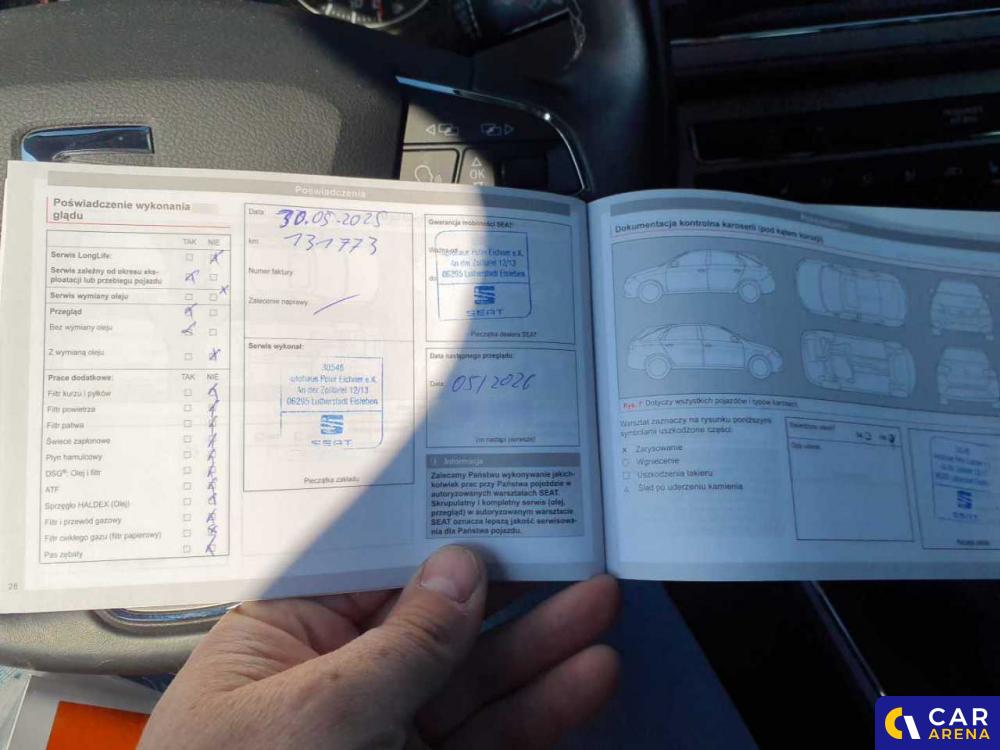 OK
Poświadczenia
Poświadczenie wykonania
glądu
TAK NIE
Serwis LongLife:
Serwis zależny od okresu eks-
ploatacji lub przebiegu pojazdu
Serwis wymiany oleju
Przegląd
Bez wymiany oleju
Z wymianą oleju
Prace dodatkowe: TAK NIE
Filtr kurzu i pyłków
Filtr powietrza
Filtr paliwa
Świece zapłonowe
Płyn hamulcowy
DSG®: Olej i filtr
ATF
Sprzęgło HALDEX (Olej)
Filtr i przewód gazowy
Filtr ciekłego gazu (filtr papierowy)
Pas zębaty
28
Data 30.05.2025
km 131773
Numer faktury
Zalecenie naprawy
Serwis wykonał:
30546
utohaus Peter Eichner e.K.
An der Zolltafel 12/13
06295 Lutherstadt Eisleben
SEAT
Pieczątka zakładu
Gwarancja mobilności SEAT:
Ważna od
do
utohaus Peter Eichner e.K.
An der Zolltafel 12/13
06295 Lutherstadt Eisleben
SEAT
Pieczątka dealera SEAT
Data następnego przeglądu:
Data: 05/2026
(co nastąpi pierwsze)
Informacja
Zalecamy Państwu wykonywanie jakich-
kolwiek prac przy Państwa pojeździe w
autoryzowanych warsztatach SEAT.
Skrupulatny i kompletny serwis (olej,
przegląd) w autoryzowanym warsztacie
SEAT oznacza lepszą jakość serwisowa-
nia dla Państwa pojazdu.
Dokumentacja kontrolna karoserii (pod kątem korozji)
Rys. 7 Dotyczy wszystkich pojazdów i typów karoserii.
Warsztat zaznaczy na rysunku poniższymi
symbolami uszkodzone części:
x Zarysowanie
○ Wgniecenie
□ Uszkodzenia lakieru
△ Ślad po uderzeniu kamienia
SEAT
CAR
ARENA